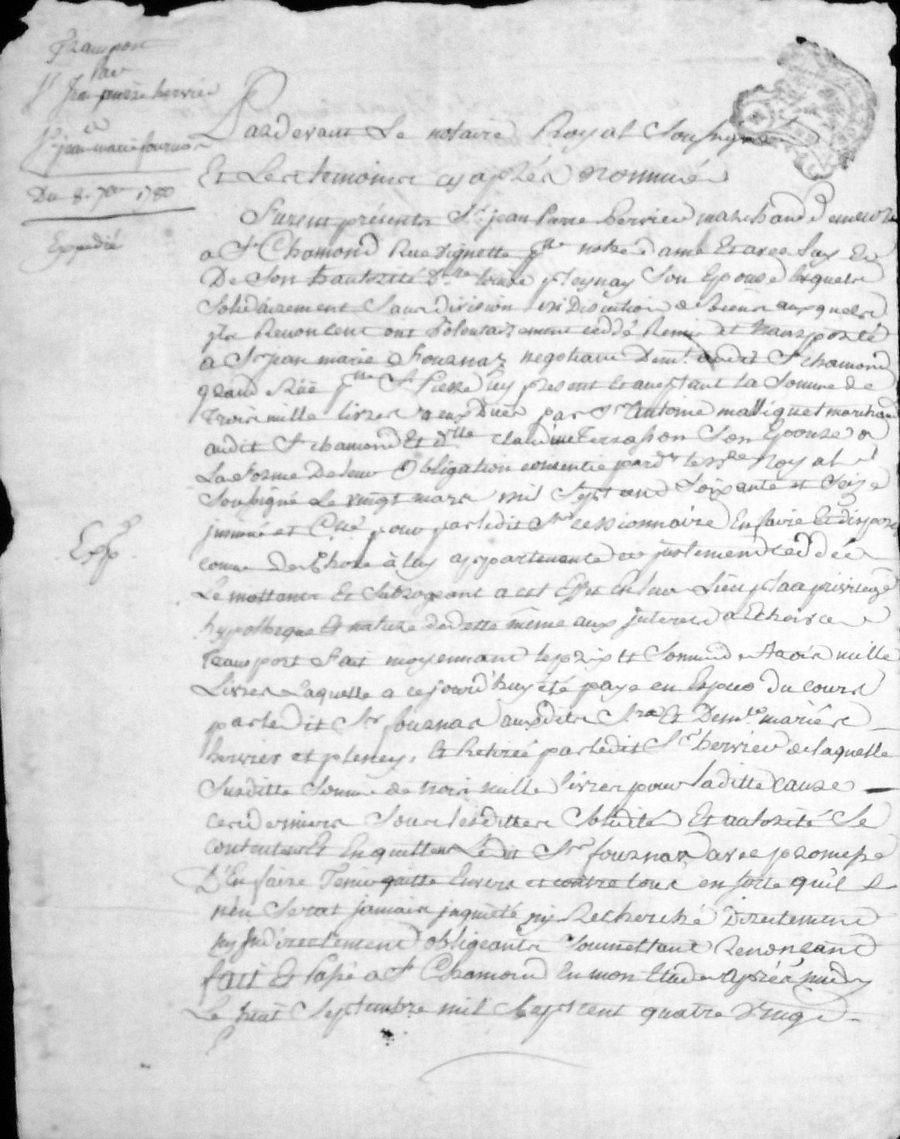 Transport
par
Sr Jean pierre hervier
a
Sr jean marie fournas
Du 8. 7bre 1780
Expedié
Pardevant Le notaire Royal Soussigné
Et Les temoins cy aprés nommés
Furent présents Sr. jean Pierre hervier marchand demeurt
a St Chamond Rue vignette psse notre dame Et avec luy Et
De Son hautorité Dlle Louise pleynay Son Epouse lesquels
Solidairement Sans division ni Discution de biens auxquels
ils Renoncent ont volontairement ceddé Remis et transporté
a Sr jean marie Fournas negotiant Demt. audit St chamond
grand Rue psse St Pierre icy present Et aceptant la Somme de
Trois mille livres a eux Dues par Sr Antoine malliquet marchand
audit St chamond Et dlle claudine Terrasson Son Epouse a
La forme De leur Obligation consentie pardt le nre Royal
Soussigné Le vingt mars mil Sept cent Soixante et Seize
pour par ledit Sr cessionnaire En faire Et disposer
comme de Chose à luy appartenante et justement ceddée
Le mettants Et Subrogeant a cet Effet en leur Lieu place privilege
hypotheque Et nature de dette même aux interets a Echoir ce
transport Fait moyennant le prix Et Somme de trois mille
Livres Laquelle a ce jourd'huy été payé en Espece du cours
par le dit Sr fournas auxdits Srs Et Demlle mariés
hervier et pleney, Et Retirée par ledit Sr hervier de laquelle
Susditte Somme de trois mille livres pour laditte cause
ces derniers Sous lesdittes Solidité Et autorité Se
contentent Et En quittent Ledit Sr fournas avec promesse
D'En faire Tenir quitte Envers et contre tous en sorte qu'il
n'en Serat jamais inquieté ny Recherché Directement
ny Indirectement obligeants Soumettant Renonçant
fait Et Passé a St Chamond En mon Etude aprés midy
Le huit Septembre mil Sept cent quatre vingt.